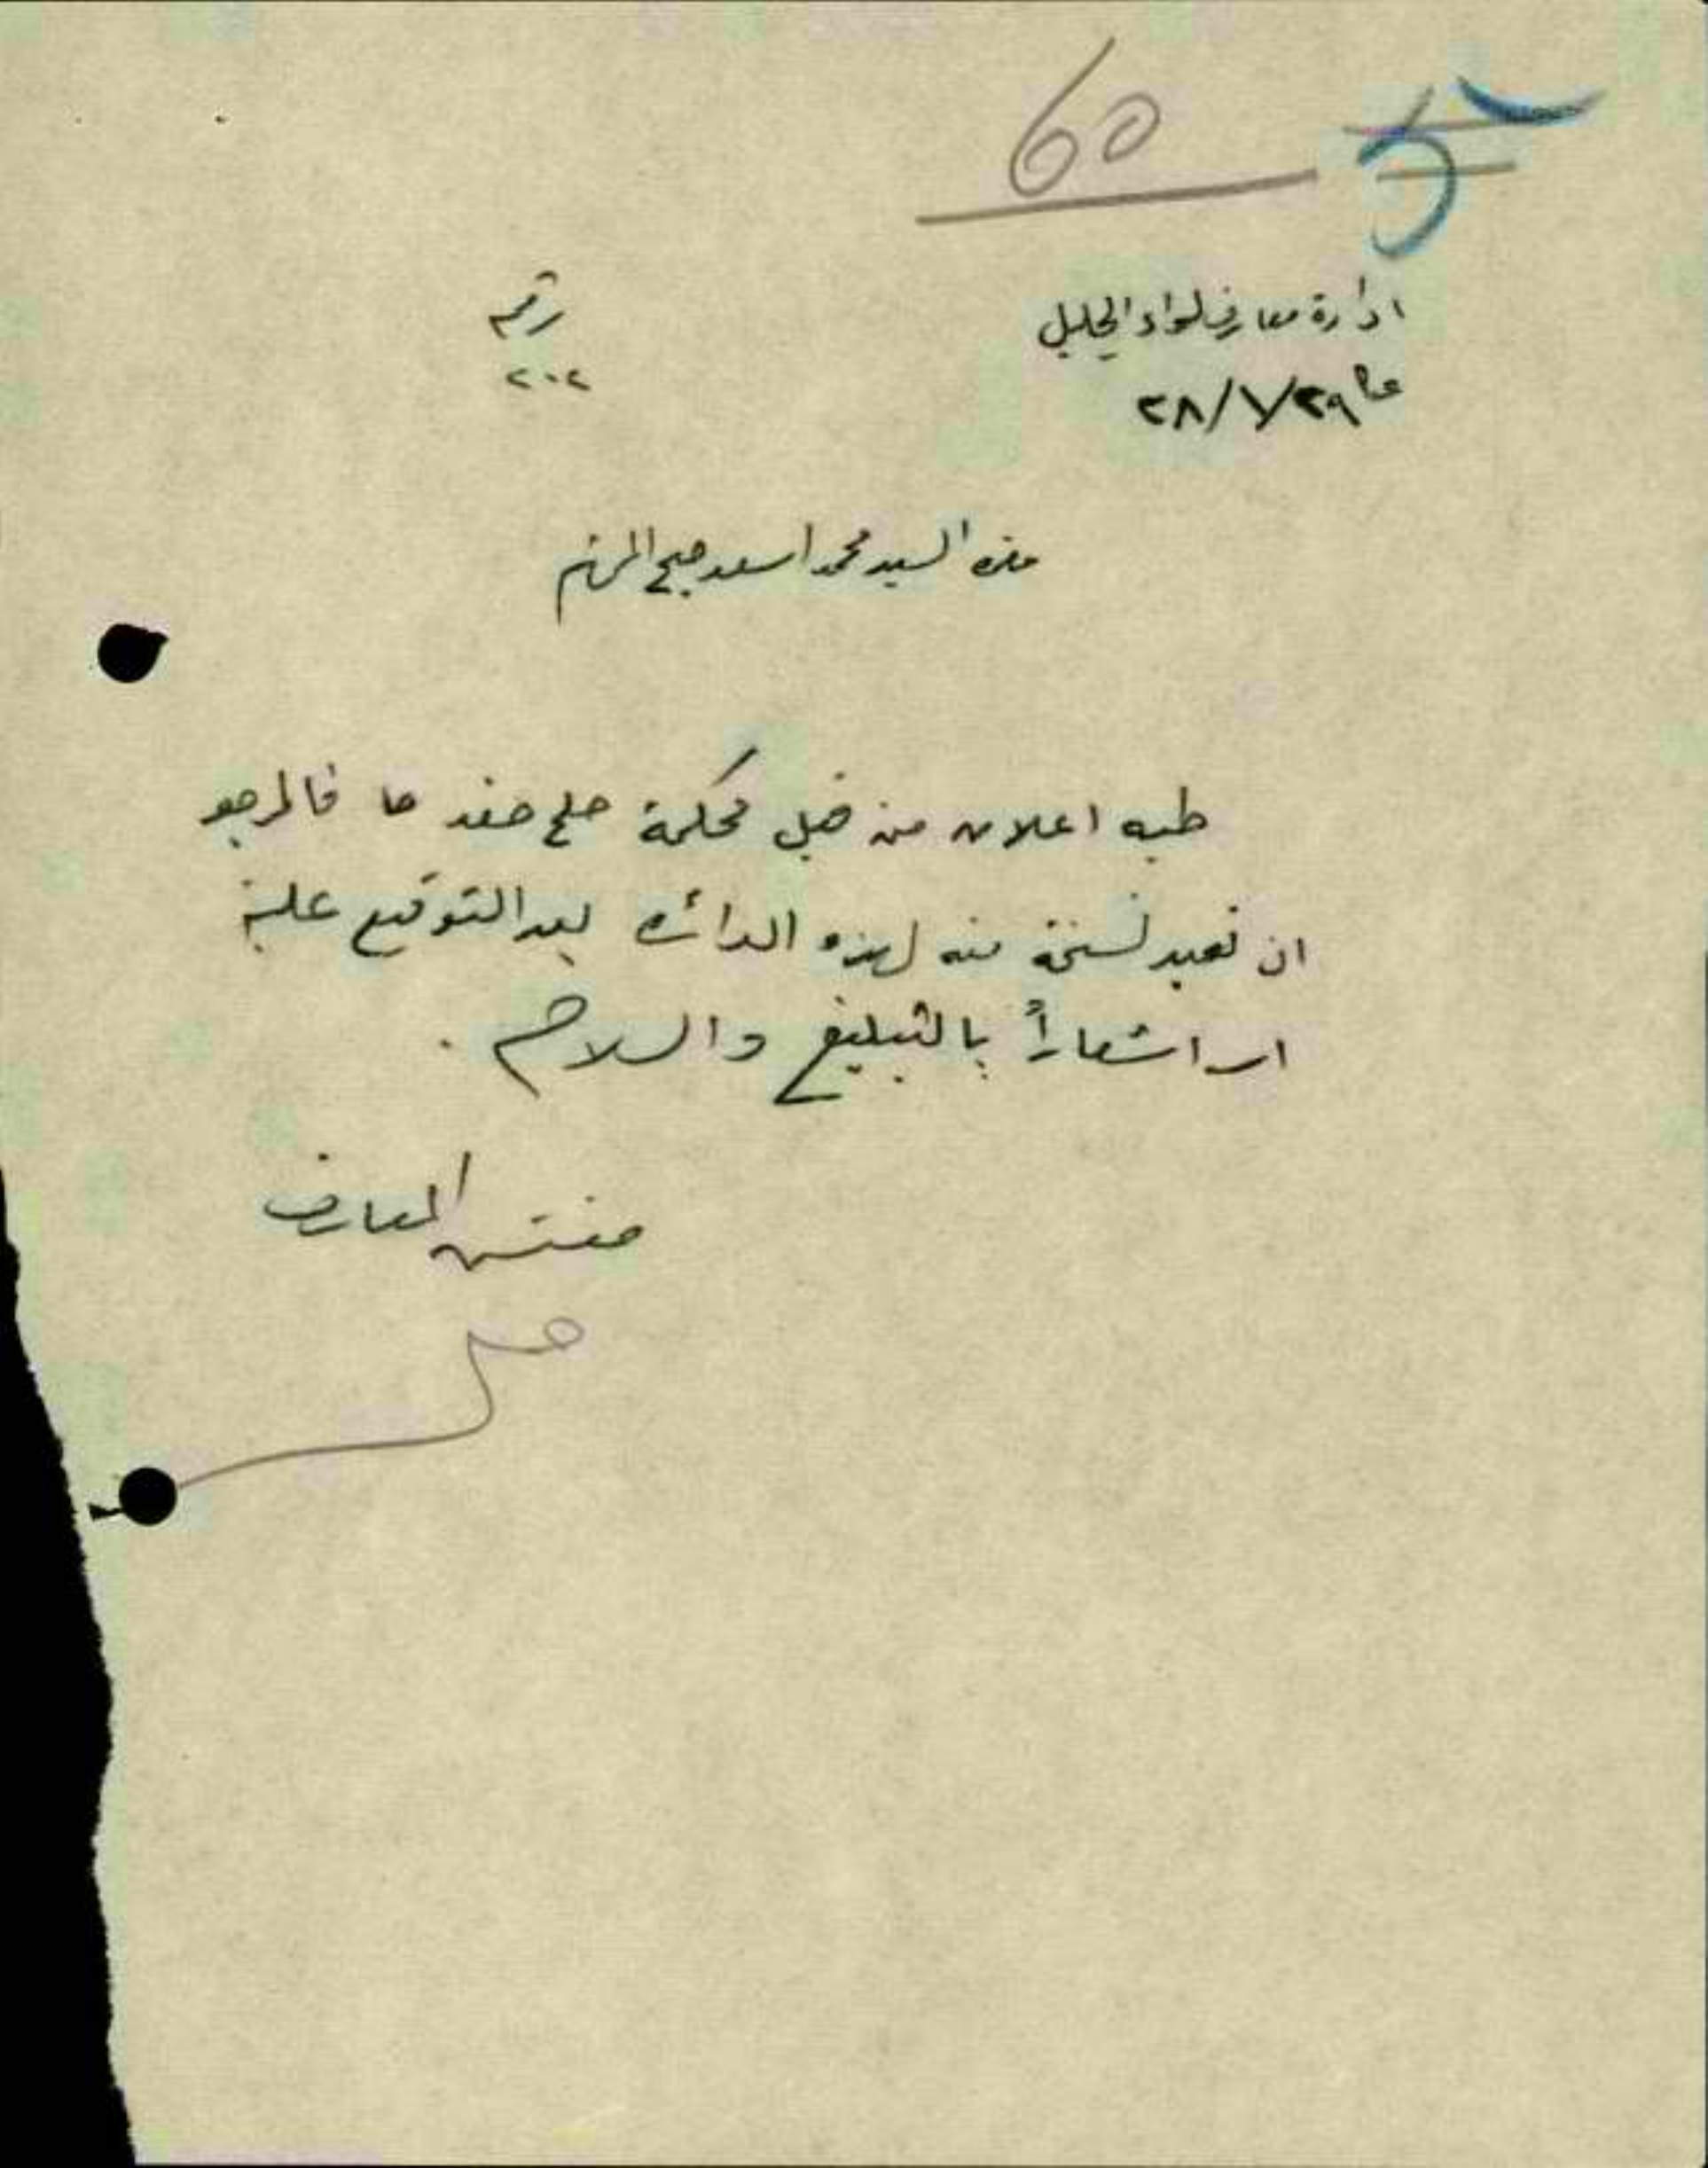 60
ادارة معارف لواء الجليل
رقم
عكا ٢٩/٧/٢٨
٢٠٢
حضرة السيد محمد اسعد صبح المحترم
طيه اعلان من قبل محكمة صلح صفد فالمرجو
ان تعيد نسخة منه لهذه الدائرة بعد التوقيع عليه
اشعاراً بالتبليغ والسلام .
مفتش المعارف